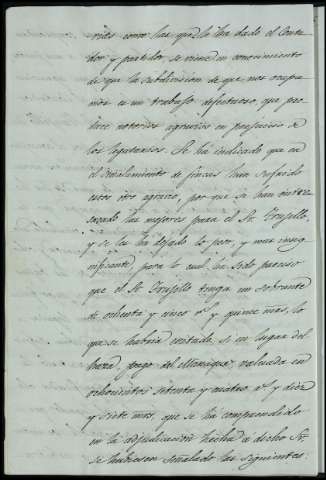 rias como las que lo ha dado el Conta
dor y partidor, se viene en conocimiento
de que la subdivision de que nos ocupa
mos es un trabajo defectuoso que pro
duce notorios agravios en perjuicio de
los legatarios. Se ha indicado que en
el señalamiento de fincas han sufrido
estos otro agravio, por que se han
sacado las mejores para el Sr. Trujillo,
y se les ha dejado lo peor, y mas insig
nificante, para lo cual ha sido preciso
que el Sr. Trujillo tenga un sobrante
de ochenta y cinco rs. y quince mrs, lo
que se habria evitado si en lugar del
haza, fuego del valuada en
ochocientos setenta y cuatro rs. y diez
y siete mrs, que se ha comprendido
en la adjudicacion hecha á dicho Sr.
se hubiesen señalado las siguientes: